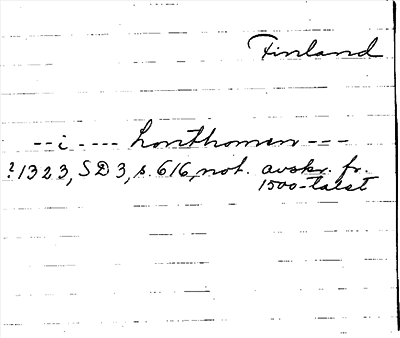 Finland
--i---- Lonthomen---
?1323, SD 3, s. 616, not. avskr. fr.
1500-talet